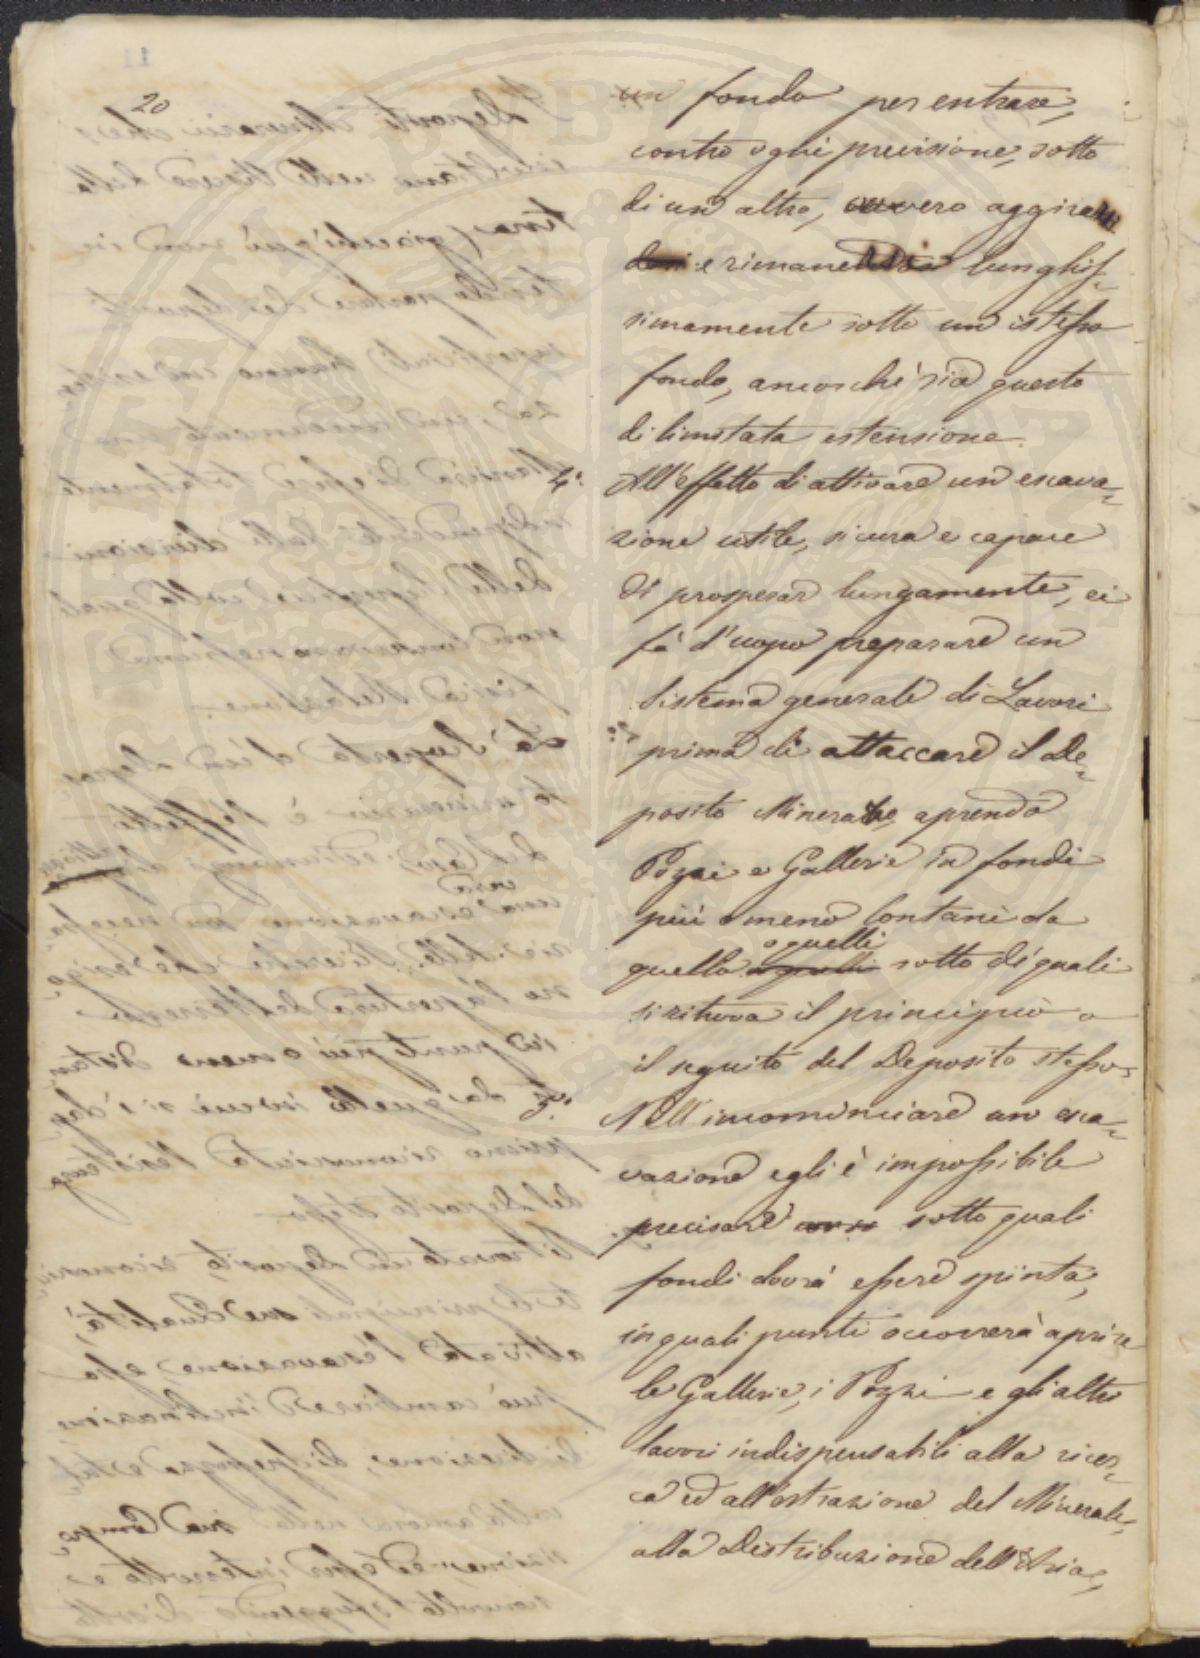 20
un fondo per entrare,
contro ogni previsione, sotto
di un altro, ovvero aggirar
e rimane lunghis=
simamente sotto un istesso
fondo, ancorchè sia questo
di limitata estensione.
4°: All'effetto di attivare un escava=
zione utile, sicura e capace
di prosperar lungamente, ci
fà d'uopo preparare un
Sistema generale di Lavori
prima di attaccare il De=
posito Minerale, aprendo
Pozzi e Gallerie in fondi
più o meno lontani da
o quelli
quello sotto di quali
si ritrova il principio o
il seguito del Deposito stesso.
5°: Nell'incominciare un esca=
vazione egli è impossibile
precisare sotto quali
fondi dovrà essere spinta,
in quali punti occorrerà aprire
le Gallerie, i Pozzi e gli altri
lavori indispensabili alla ricer=
ca ed all'estrazione del Minerale,
alla Distribuzione dell'Aria,